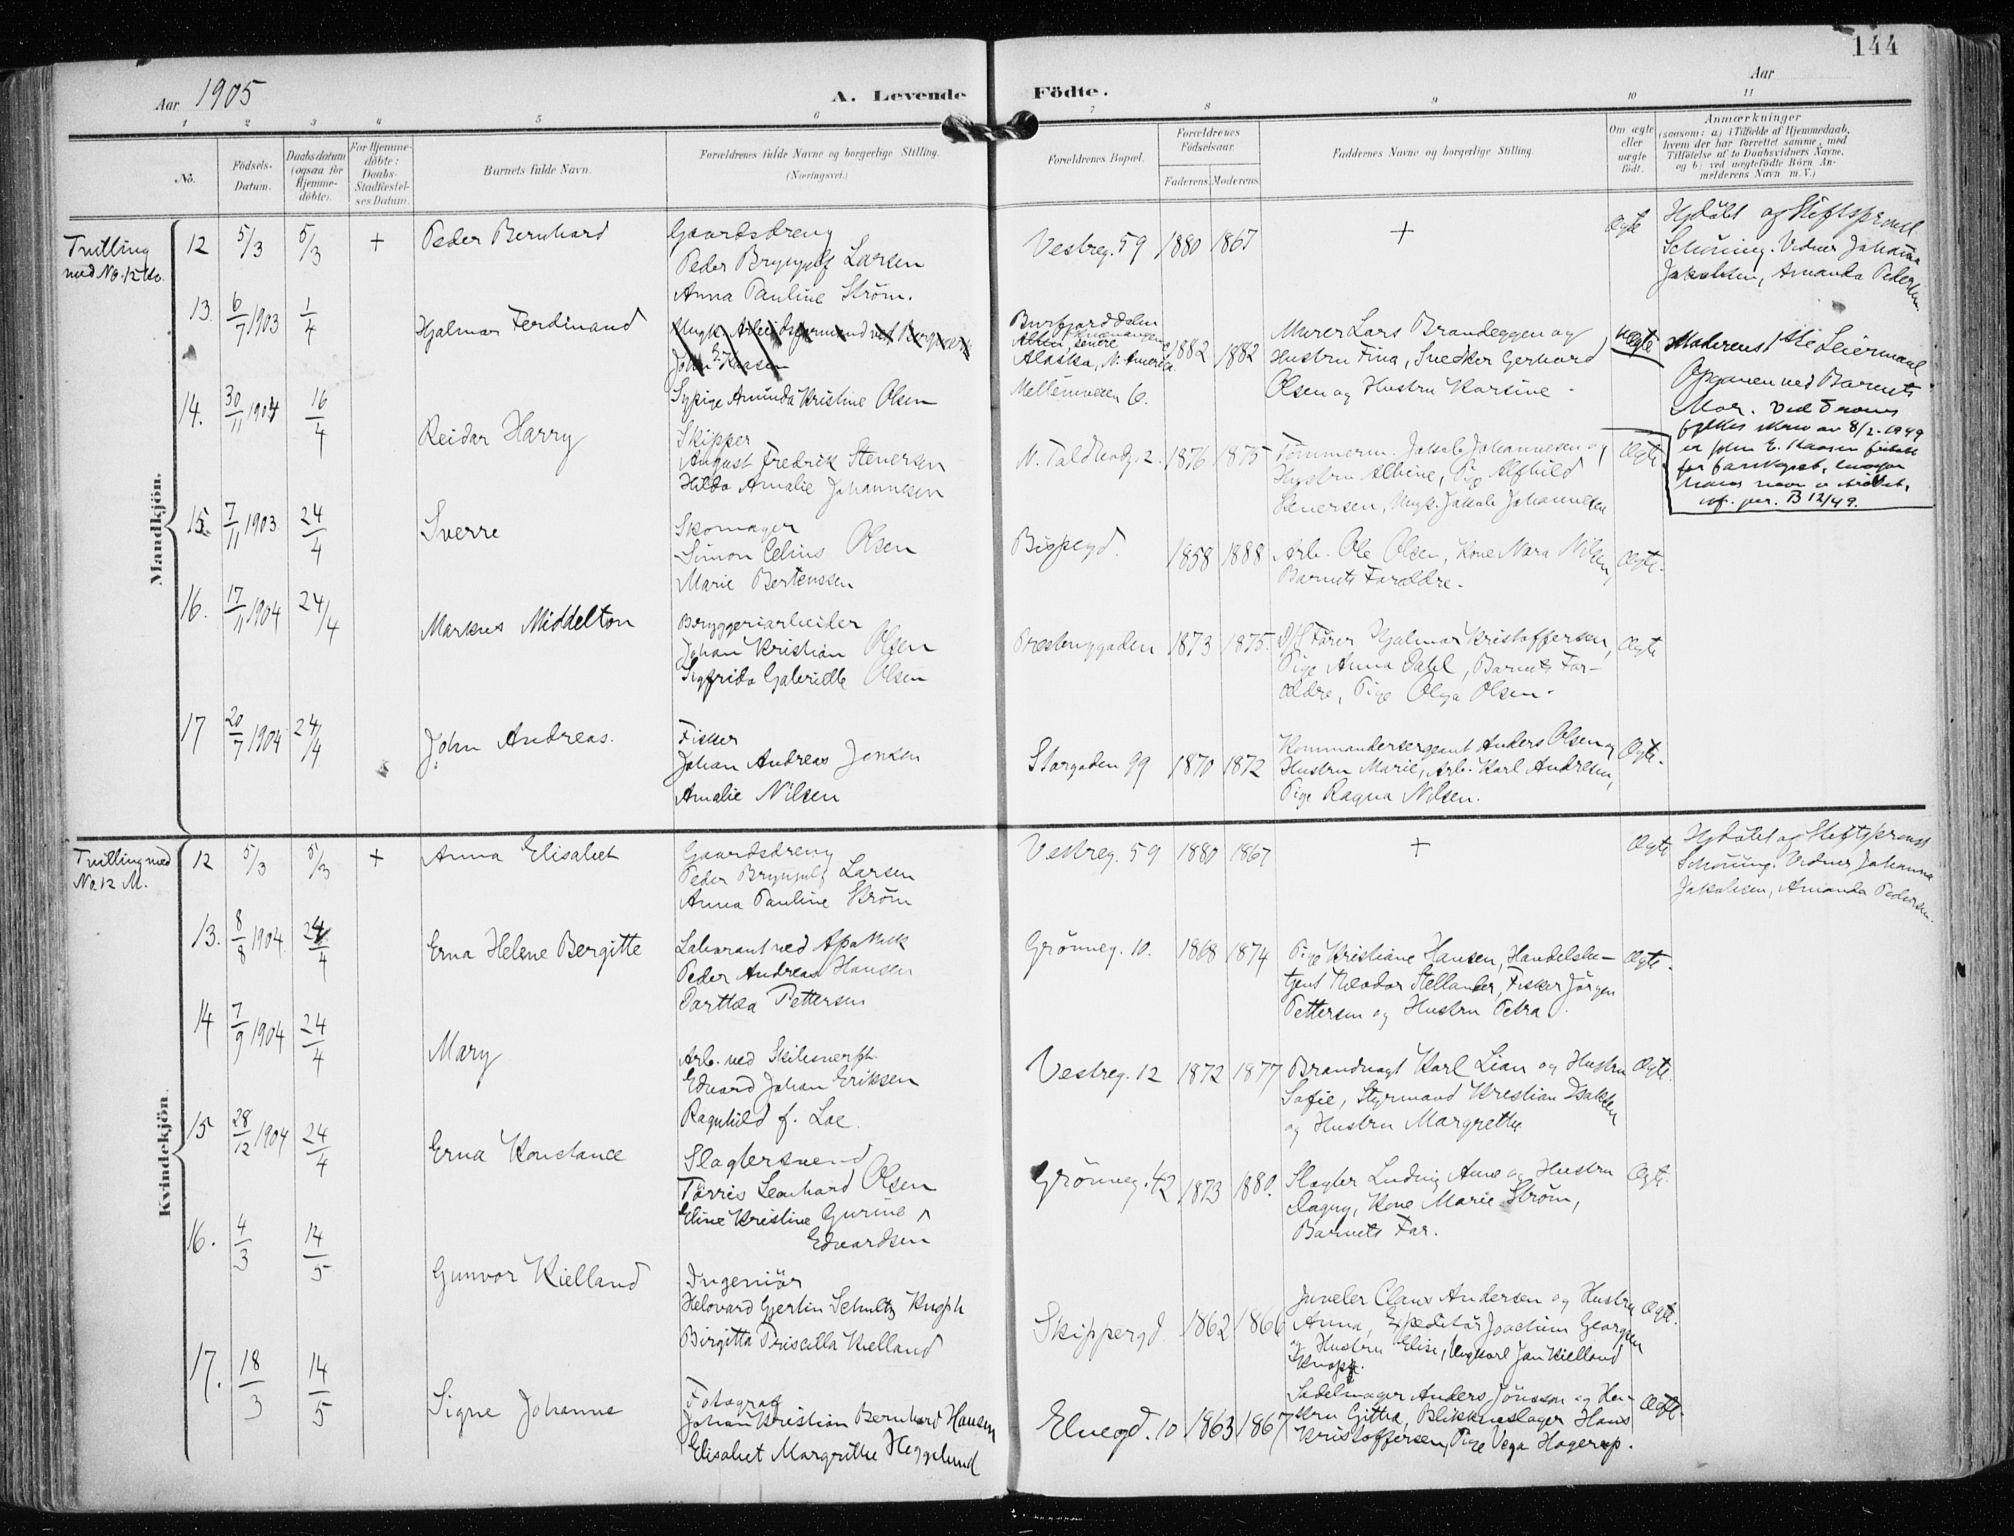 144
Aar 1905
A. Levende Födte.
Aar
1 2 3 4 5 6 7 8 9 10 11
No.
Födsels-Datum.
Daabsdatum (ogsaa for Hjemme-döbte).
For Hjemme-döbte: Daabs-Stadfæstel-ses Datum.
Barnets fulde Navn.
Forældrenes fulde Navne og borgerlige Stilling. (Næringsvei.)
Forældrenes Bopæl.
Forældrenes Födselsaar.
Faderens. Moderens.
Faddernes Navne og borgerlige Stilling.
Om ægte eller uægte födt.
Anmærkninger
(saasom: a) i Tilfælde af Hjemmedaab, hvem der har forrettet samme, med Tilföielse af to Daabsvidners Navne, og b) ved uægtefödte Börn Anmelderens Navn m. V.)
Mandkjön.
Tvilling
med No. 12 Kv.
12 5/3 5/3 + Peder Bernhard
Gaardsdreng
Peder Brynjulf Larsen
Anna Pauline Strøm.
Vestreg. 59 1880 1867 + Ægte
Hjdöbt af Stiftsprovst
Schöning. Vidner Johanna
Jakobsen, Amanda Pedersen
13. 6/7 1903 1/4 Hjalmar Ferdinand
Sypige Amanda Kristine Olsen
Alaska, N. Amerika.
Mellemveien 6.
1882 1882
Murer Lars Brandeggen og
Hustru Fina, Snedker Gerhard
Olsen og Hustru Karsine.
Uægte
Moderens 1ste Leiermaal
Opgaven ved Barnets
Mor. Ved Troms
fylkes skriv av 8/2-1949
er John E. Kaasen fritatt
for farskapet, hvorfor
hans navn er strøket,
14. 30/11 1904 16/4 Reidar Harry
Skipper
August Fredrik Stenersen
Hilda Amalie Johannesen
1876 1875
Tømmerm. Jakob Johannesen og
Hustru Albine, Pige Alfhild
Stenersen, Ungk. Jakob Johannesen
Ægte
15. 7/11 1903 24/4 Sverre
Skomager
Simon Celius Olsen
Marie Bertenssen
Bispegd. 1858 1888
Arb. Ole Olsen, Kone Mara Nilsen,
Barnets Foreldre.
Ægte.
16. 17/11 1904 24/4 Markus Middelton
Bryggeriarbeider
Johan Kristian Olsen
Sigfrida Gabrielle Olsen
1873 1875.
D/S Fører Hjalmar Kristoffersen,
Pige Anna Dahl, Barnets For-
ældre, Pige Olga Olsen.
Ægte
17 20/7 1904 24/4 John Andreas.
Fisker
Johan Andreas Jensen
Amalie Nilsen
Storgaden 99 1870 1872
Kommandersergeant Anders Olsen og
Hustru Marie, Arb. Karl Andresen,
Pige Ragna Nilsen.
Ægte.
Kvindekjön.
Tvilling med
No. 12 M.
12 5/3 5/3 + Anna Elisabet
Gaardsdreng
Peder Brynjulf Larsen
Anna Pauline Strøm
Vestreg. 59 1880 1867 + Ægte
Hjdöbt af Stiftsprovst
Schöning. Vidner Johanna
Jakobsen, Amanda Pedersen.
13. 8/8 1904 24/4 Erna Helene Bergitte
Laborant ved Apothek
Peder Andreas Hansen
Darthea Pettersen
Grönneg. 10. 1868 1874
Pige Kristiane Hansen, Handelsbe-
tjent Theodor Stellander, Fisker Jörgen
Pettersen og Hustru Petra.
Ægte.
14 7/9 1904 24/4 Mary
Arb. ved Skibsverft.
Edvard Johan Eriksen
Ragnhild f. Loe.
Vestreg. 12 1872 1877
Brandvagt Karl Lian og Hustru
Sofie, Styrmand Kristian Isaksen
og Hustru Margrethe
Ægte.
15 28/12 1904 24/4 Erna Konstance
Slagtersvend
Tørris Leonhard Olsen
Eline Kristine Gurine
Edvardsen
Grönneg. 42 1873 1880.
Slagter Ludvig Aune og Hustru
Dagny, Kone Marie Strøm,
Barnets Far.
Ægte.
16. 4/3 14/5 Gunvor Kielland
Ingeniör
Gjertin Schultz
Birgitta Priscilla Kielland
Skippergd. 1862 1866
Juveler Claus Andersen og Hustru
Anna, Expeditör Joachim Georg
og Hustru Elise, Ungkarl Jan Kielland
Ægte.
17. 18/3 14/5 Signe Johanne
Fotograf
Johan Kristian Bernhard Hansen
Elisabet Margrethe Heggelund
Elvegd. 10 1863 1867
Sadelmager Anders Jönsson og Hu-
stru Gitta, Blikkenslager Hans
Kristoffersen, Pige Vega Hagerup.
Ægte.